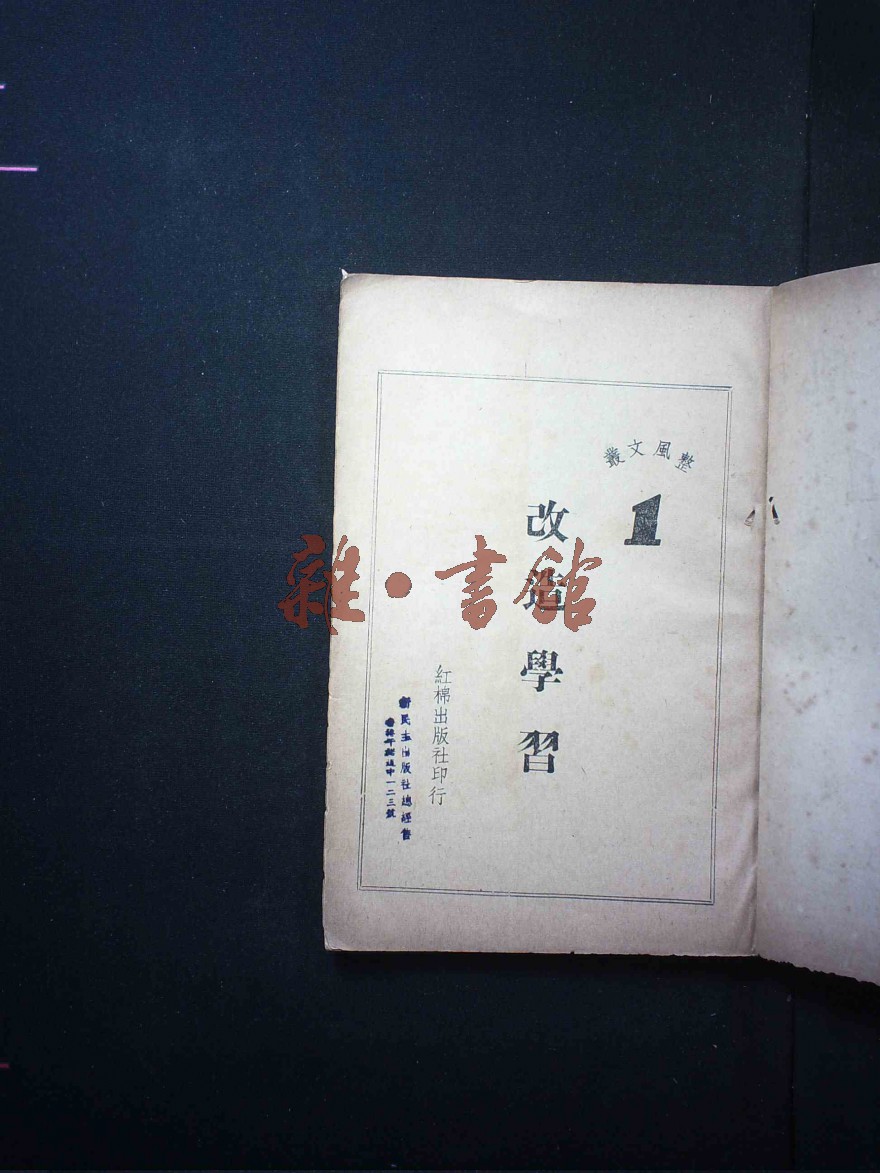 整風文叢
1
改造學習
紅棉出版社印行
新民主出版社總經售
道中一二三號
雜·書館